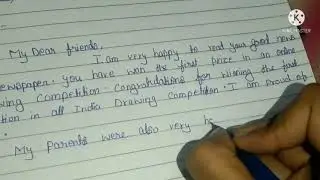 My Dear friends,
I am very happy to read your good news
ewspaper. you have won the first price in an online
wing Competition. Congratulations for winning the first
ition in all India Drawing Competition. I am proud of
My parents were also very h
KINEMASTER